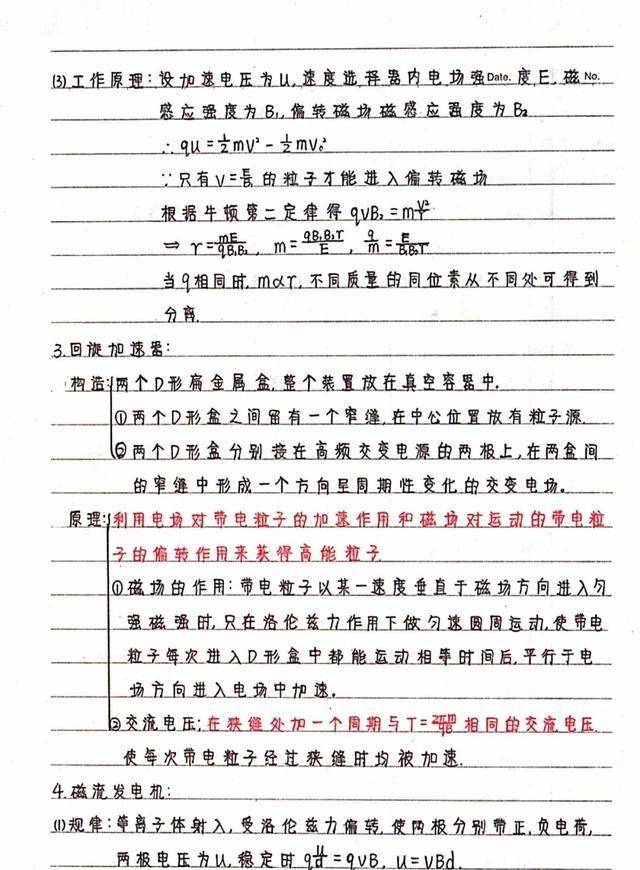 (3)工作原理:设加速电压为U,速度选择器内电场强Date.度E,磁No.
感应强度为B₁,偏转磁场磁感应强度为B₂
∴qU=½mv²-½mv₀²
∵只有v=E/B₁的粒子才能进入偏转磁场
根据牛顿第二定律得qvB₂=mv²/r
⇒r=mE/qB₁B₂, m=qB₁B₂r/E, q/m=E/B₁B₂r
当q相同时,m∝r,不同质量的同位素从不同处可得到
分离.
3.回旋加速器:
构造:两个D形扁金属盒,整个装置放在真空容器中.
①两个D形盒之间留有一个窄缝,在中公位置放有粒子源.
②两个D形盒分别接在高频交变电源的两极上,在两盒间
的窄缝中形成一个方向呈周期性变化的交变电场。
原理:利用电场对带电粒子的加速作用和磁场对运动的带电粒
子的偏转作用来获得高能粒子.
①磁场的作用:带电粒子以某一速度垂直于磁场方向进入匀
强磁强时,只在洛伦兹力作用下做匀速圆周运动,使带电
粒子每次进入D形盒中都能运动相等时间后,平行于电
场方向进入电场中加速。
②交流电压:在狭缝处加一个周期与T=2πm/qB相同的交流电压.
使每次带电粒子经过狭缝时均被加速.
4.磁流发电机:
(1)规律:等离子体射入,受洛伦兹力偏转,使两极分别带正,负电荷,
两极电压为U,稳定时qU/d=qvB, U=vBd.